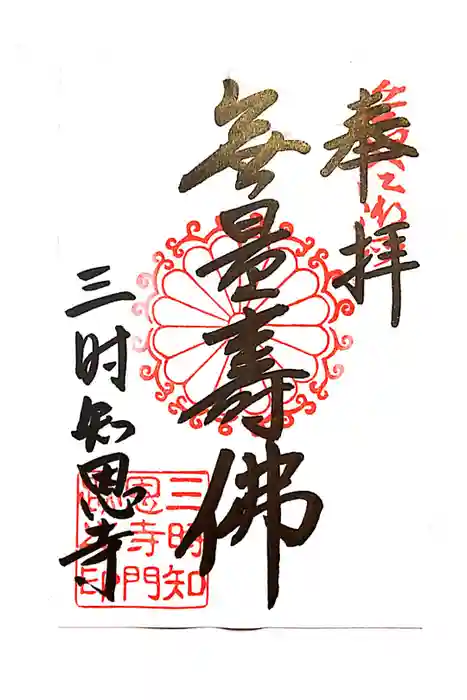 奉拝
無量壽佛
三时知恩寺
三時知
恩寺門